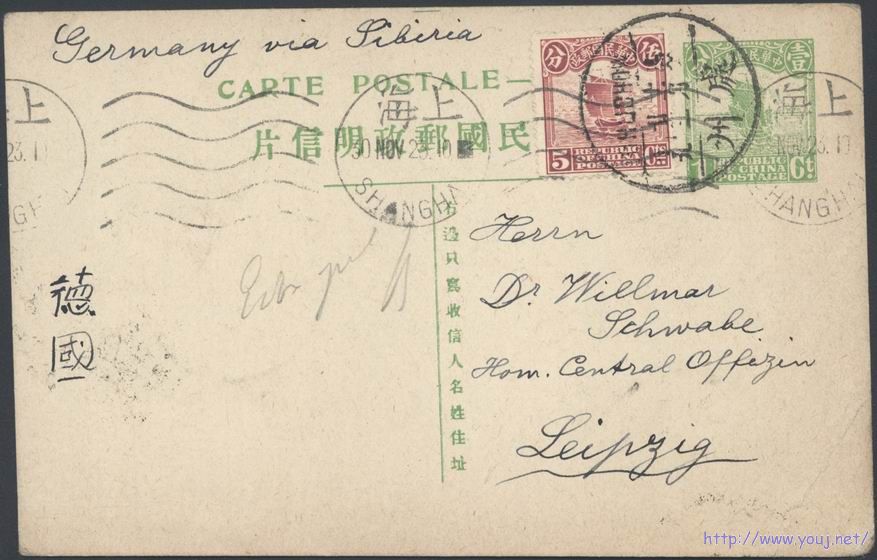 Germany via Siberia
CARTE POSTALE
片信明政郵國民
伍
分
中華民國郵政
5
REPUBLIC
OF CHINA
POSTAGE
Cts
壹
1
REPUBLIC
OF CHINA
POSTALE
Ct
上海
30 NOV 23.10
SHANGHAI
上海
SHANGHAI
上海
NOV 23.1
SHANGHAI
右邊只寫收信人名姓住址
德國
Herrn
Dr Willmar
Schwabe
Hom. Central Offizin
Leipzig
http://www.youj.net/